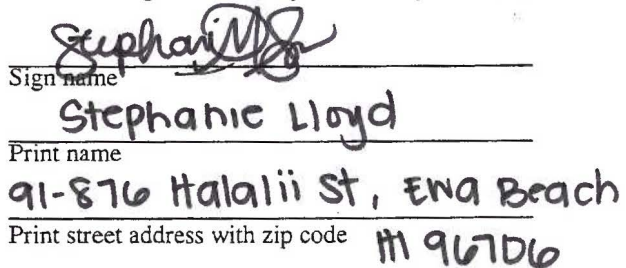 Sign name
Stephanie Lloyd
Print name
91-876 Halalii St, Ewa Beach
Print street address with zip code HI 96706